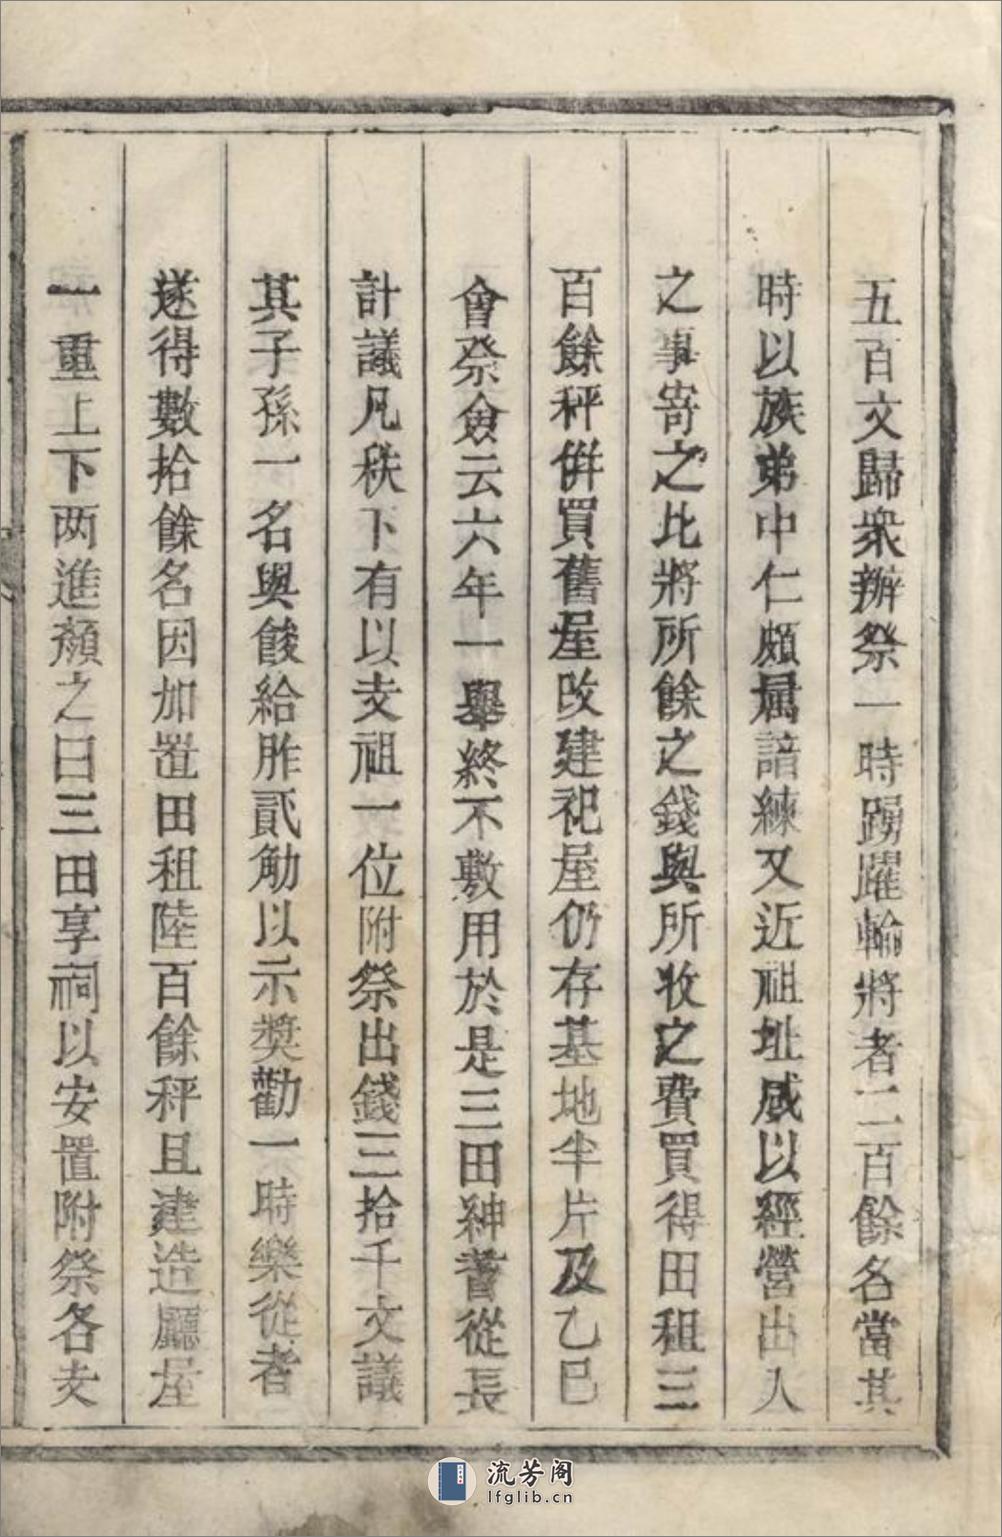 五百文歸衆辦祭一時踴躍輸將者二百餘名當其
時以族弟中仁頗属諳練又近祖址咸以經營出入
之事寄之比將所餘之錢與所收之費買得田租三
百餘秤併買舊屋改建祀屋仍存基地半片及乙巳
會祭僉云六年一舉終不敷用於是三田紳耆從長
計議凡秩下有以支祖一位附祭出錢三拾千文議
其子孫一名與餕給胙貳觔以示奬勸一時樂從者
遂得數拾餘名因加置田租陸百餘秤且建造廳屋
一重上下两進顏之曰三田享祠以安置附祭各支
流芳阁
lfglib.cn